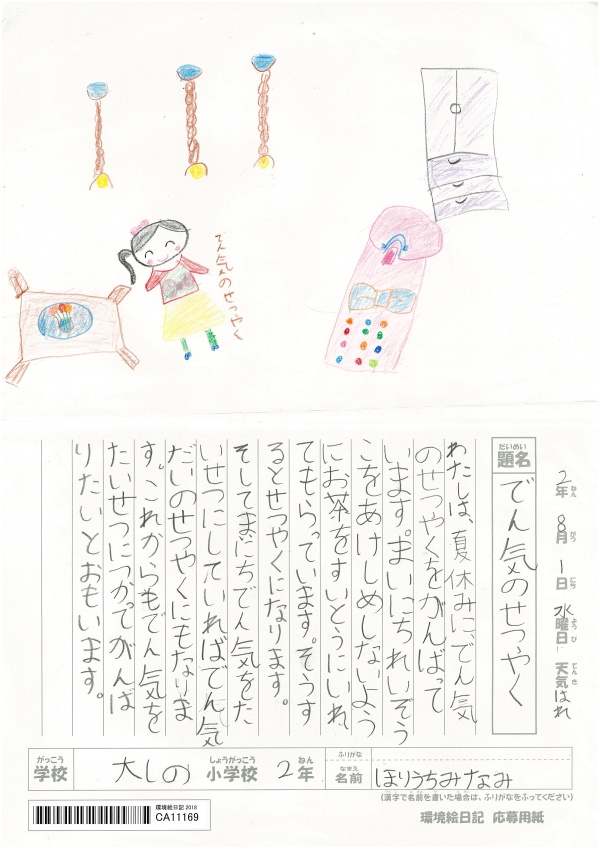 でん気のせつやく
2年 8月 1日 水曜日 天気 はれ
ねん がつ にち ようび てんき
だいめい
題名
でん気のせつやく
わたしは、夏休みに、でん気
のせつやくをがんばって
います。まいにちれいぞう
こをあけしめしないよう
にお茶をすいとうにいれ
てもらっています。そうす
るとせつやくになります。
そしてまにちでん気をた
いせつにしていればでん気
だいのせつやくにもなりま
す。これからもでん気を
たいせつにつかってがんば
りたいとおもいます。
がっこう しょうがっこう ねん
学校 大しの 小学校 2年
ふりがな
なまえ
名前 ほりうちみなみ
(漢字で名前を書いた場合は、ふりがなをふってください)
環境絵日記2018
CA11169
環境絵日記 応募用紙